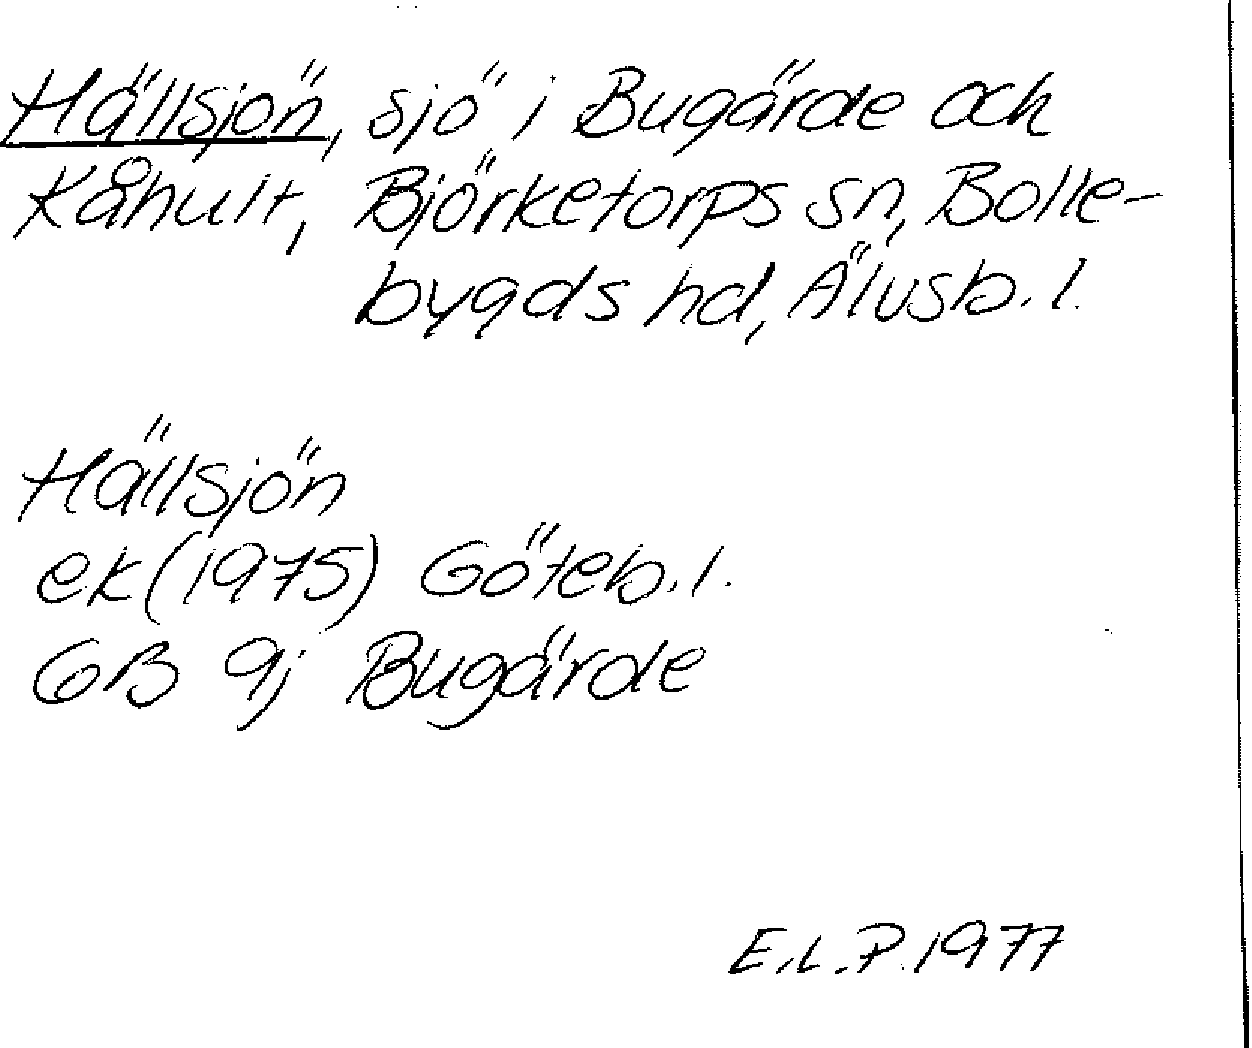 Hällsjön, sjö i Bugärde och
Kåhult, Björketorps sn, Bolle-
bygds hd, Älvsb. l.
Hällsjön
ek (1975) Göteb. l.
GB 9j Bugärde
E.L.P. 1977